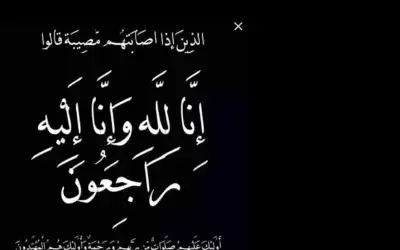 الذين إذا اصابتهم مصيبة قالوا
إِنَّا لِلَّهِ وَإِنَّا إِلَيْهِ
رَاجِعُونَ
أُولَئِكَ عَلَيْهِمْ صَلَوَاتٌ مِّن رَّبِّهِمْ وَرَحْمَةٌ وَأُولَئِكَ هُمُ الْمُهْتَدُونَ